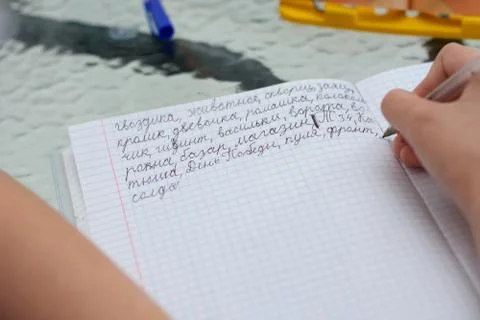 гвоздика, животная, скворец, заяц,
кролик, девочка, ромашка, колоколь
чик, гиацинт, васильки, ворота, во
рона, базар, магазин, Т 34, Ка
тюша, День Победы, пуля, фронт,
солда